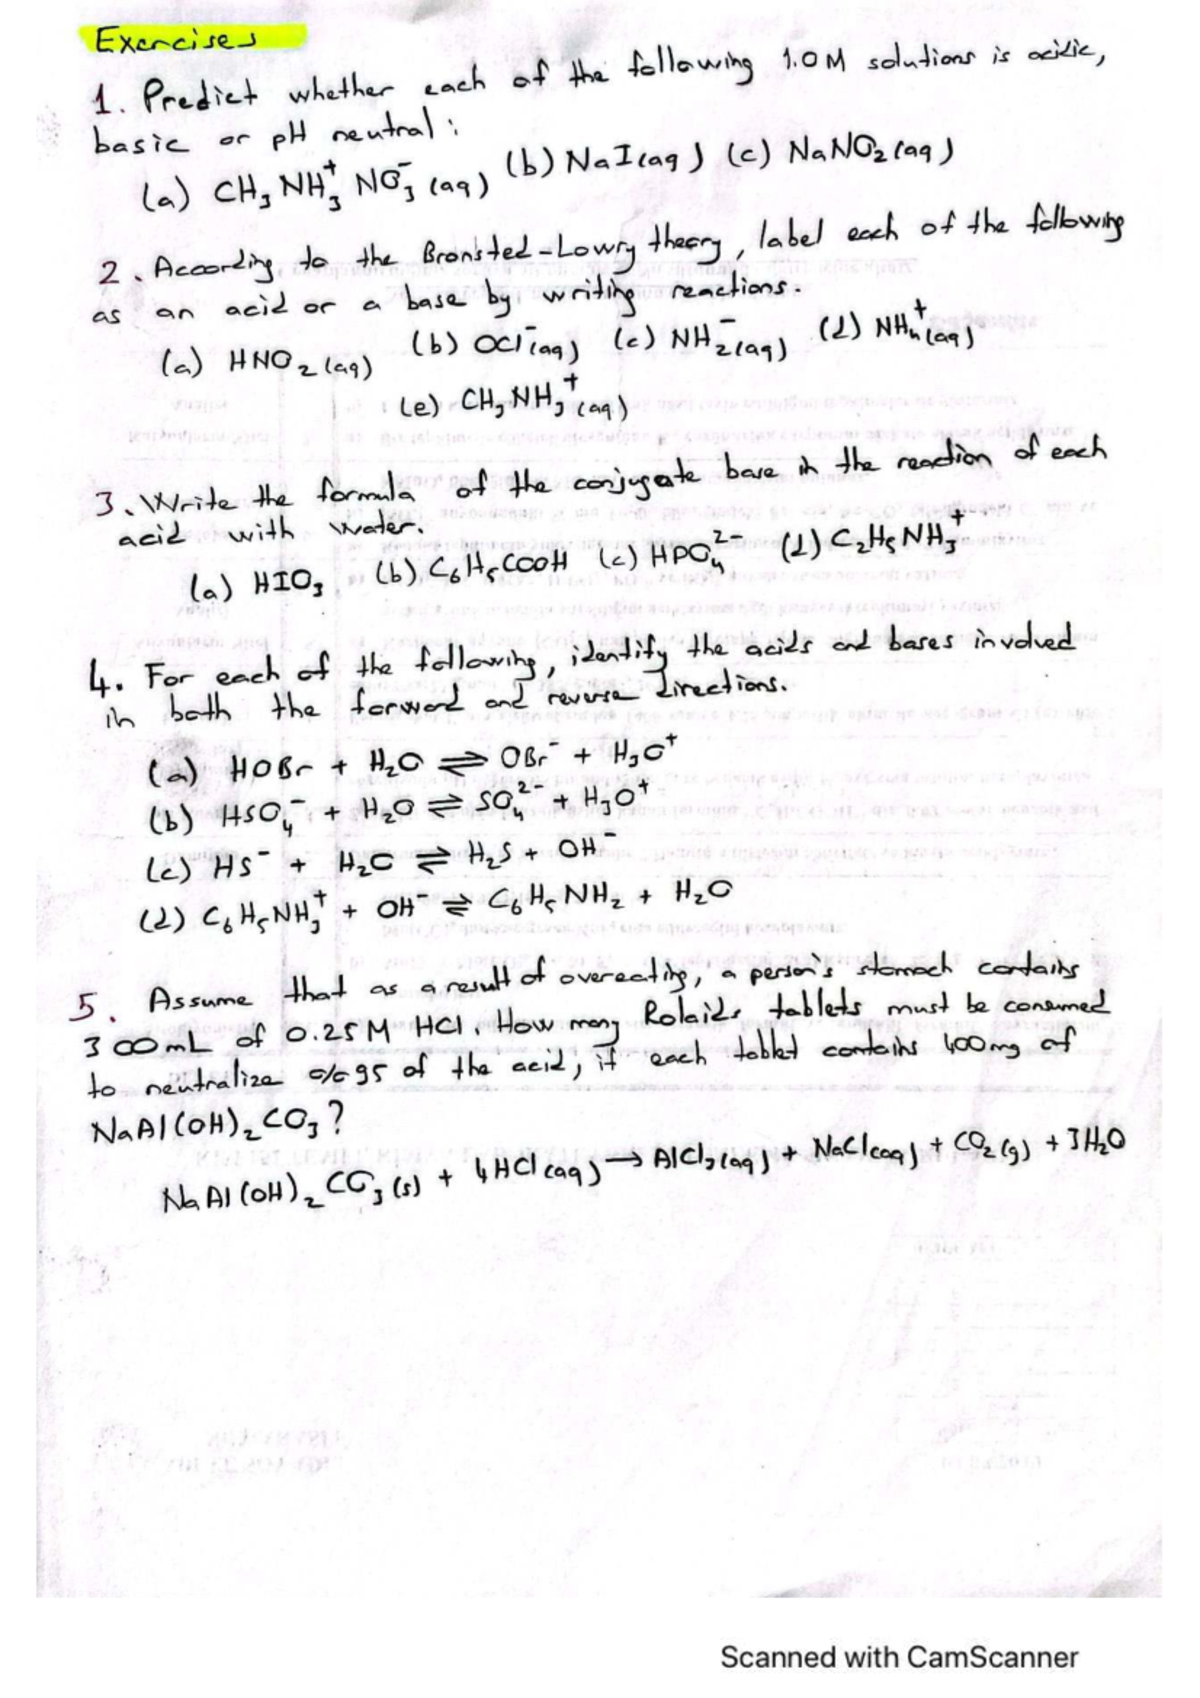 Exercises
1. Predict whether each of the following 1.0 M solutions is acidic,
basic or pH neutral:
(a) CH₃NH₃⁺NO₃⁻(aq) (b) NaI(aq) (c) NaNO₂(aq)
2. According to the Bronsted-Lowry theory, label each of the following
as an acid or a base by writing reactions.
(a) HNO₂(aq) (b) OCl⁻(aq) (c) NH₂⁻(aq) (d) NH₄⁺(aq)
(e) CH₃NH₃⁺(aq)
3. Write the formula of the conjugate base in the reaction of each
acid with water.
(a) HIO₃ (b) C₆H₅COOH (c) HPO₄²⁻ (d) C₂H₅NH₃⁺
4. For each of the following, identify the acids and bases involved
in both the forward and reverse directions.
(a) HOBr + H₂O ⇌ OBr⁻ + H₃O⁺
(b) HSO₄⁻ + H₂O ⇌ SO₄²⁻ + H₃O⁺
(c) HS⁻ + H₂O ⇌ H₂S + OH⁻
(d) C₆H₅NH₃⁺ + OH⁻ ⇌ C₆H₅NH₂ + H₂O
5. Assume that as a result of overeating, a person's stomach contains
300mL of 0.25M HCl. How many Rolaids tablets must be consumed
to neutralize %95 of the acid, if each tablet contains 400mg of
NaAl(OH)₂CO₃?
NaAl(OH)₂CO₃(s) + 4HCl(aq) → AlCl₃(aq) + NaCl(aq) + CO₂(g) + 3H₂O
Scanned with CamScanner